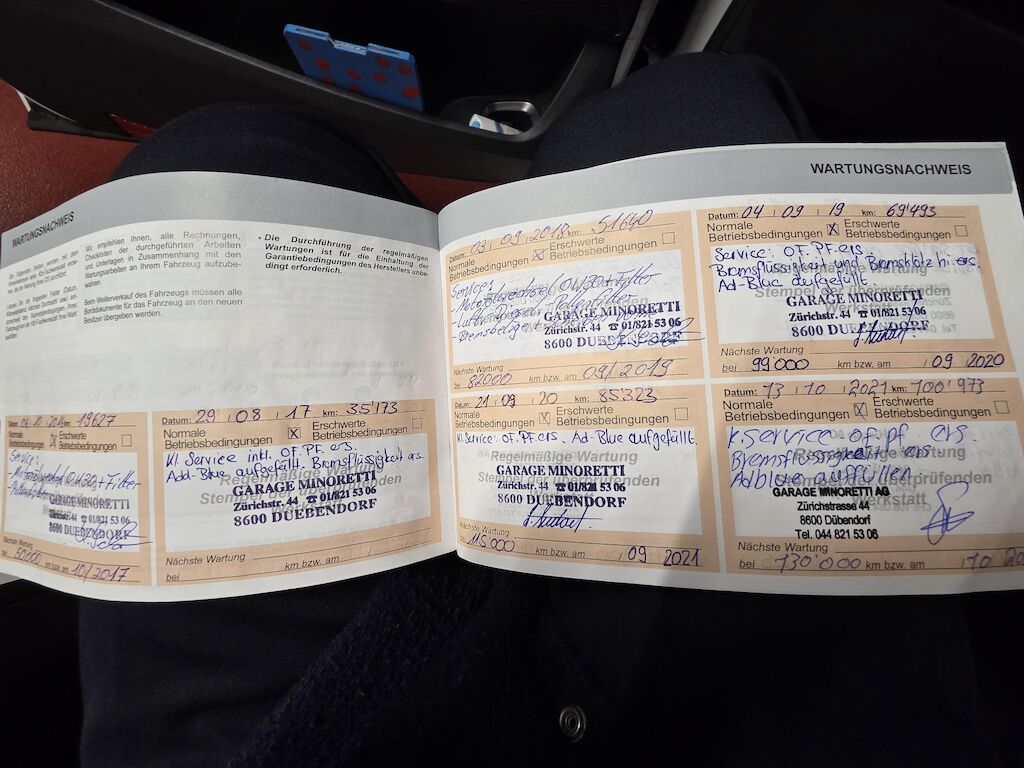 WARTUNGSNACHWEIS
Wir empfehlen Ihnen, alle Rechnungen,
Checklisten der durchgeführten Arbeiten
und Unterlagen in Zusammenhang mit den
Wartungsarbeiten an Ihrem Fahrzeug aufzube-
wahren.
Beim Weiterverkauf des Fahrzeugs müssen alle
Borddokumente für das Fahrzeug an den neuen
Besitzer übergeben werden.
* Die Durchführung der regelmäßigen
Wartungen ist für die Einhaltung der
Garantiebedingungen des Herstellers unbe-
dingt erforderlich.
km: 19627
Normale Betriebsbedingungen Erschwerte Betriebsbedingungen
Service:
GARAGE MINORETTI
Zürichstr. 44 ☎ 01/821 53 06
8600 DUEBENDORF
Nächste Wartung
bei 50000 km bzw. am 10/2017
Datum: 29 08 17 km: 35'173
Normale Betriebsbedingungen X Erschwerte Betriebsbedingungen
Kl Service inkl. OF. PF. ers.
Add-Blue aufgefüllt. Bremsflüssigkeit ers.
Regelmäßige Wartung
Stempel der überprüfenden
GARAGE MINORETTI
Zürichstr. 44 ☎ 01/821 53 06
8600 DUEBENDORF
Nächste Wartung
bei km bzw. am / /
WARTUNGSNACHWEIS
Datum: 03 09 2018 km: 51640
Normale Betriebsbedingungen X Erschwerte Betriebsbedingungen
Service:
GARAGE MINORETTI
Zürichstr. 44 ☎ 01/821 53 06
8600 DUEBENDORF
Nächste Wartung
bei 82000 km bzw. am 09/2019
Datum: 04 09 19 km: 69'493
Normale Betriebsbedingungen X Erschwerte Betriebsbedingungen
Service: OF. PF. ers.
Bremsflüssigkeit und Bremsklötz hi ers.
Ad-Blue aufgefüllt.
Stempel der überprüfenden
Werkstatt
GARAGE MINORETTI
Zürichstr. 44 ☎ 01/821 53 06
8600 DUEBENDORF
Nächste Wartung
bei 99000 km bzw. am 09 2020
Datum: 21 09 20 km: 85'323
Normale Betriebsbedingungen X Erschwerte Betriebsbedingungen
Kl. Service: OF. PF. ers. Ad-Blue aufgefüllt.
Regelmäßige Wartung
Stempel der überprüfenden
GARAGE MINORETTI
Zürichstr. 44 ☎ 01/821 53 06
8600 DUEBENDORF
Nächste Wartung
bei 115000 km bzw. am 09 2021
Datum: 13 10 2021 km: 100'973
Normale Betriebsbedingungen X Erschwerte Betriebsbedingungen
K. Service of. pf ers.
Bremsflüssigkeit ers
Adblue auffüllen.
Werkstatt
GARAGE MINORETTI AG
Zürichstrasse 44
8600 Dübendorf
Tel. 044 821 53 06
Nächste Wartung
bei 130'000 km bzw. am 10